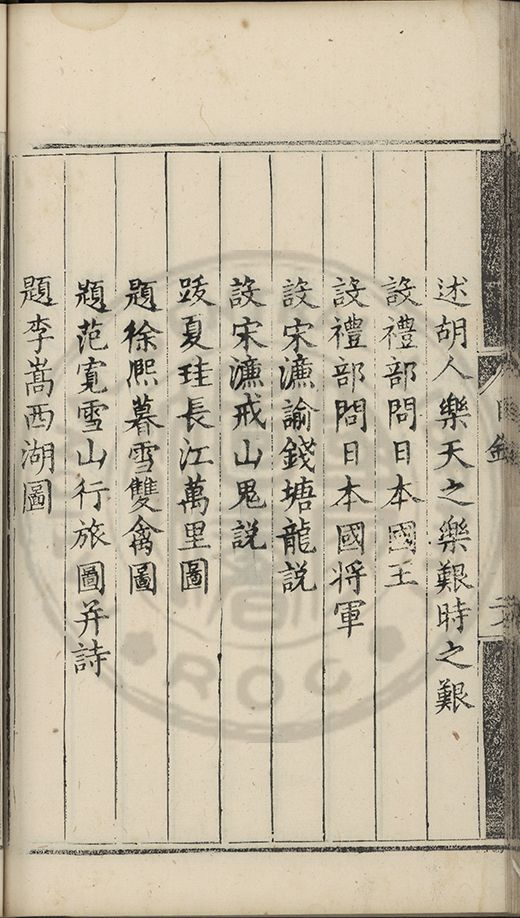 述胡人樂天之樂艱時之艱
設禮部問日本國王
設禮部問日本國将軍
設宋濂諭錢塘龍説
設宋濂戒山鬼説
跋夏珪長江萬里圖
題徐熙暮雪雙禽圖
題范寛雪山行旅圖并詩
題李嵩西湖圖
ROC